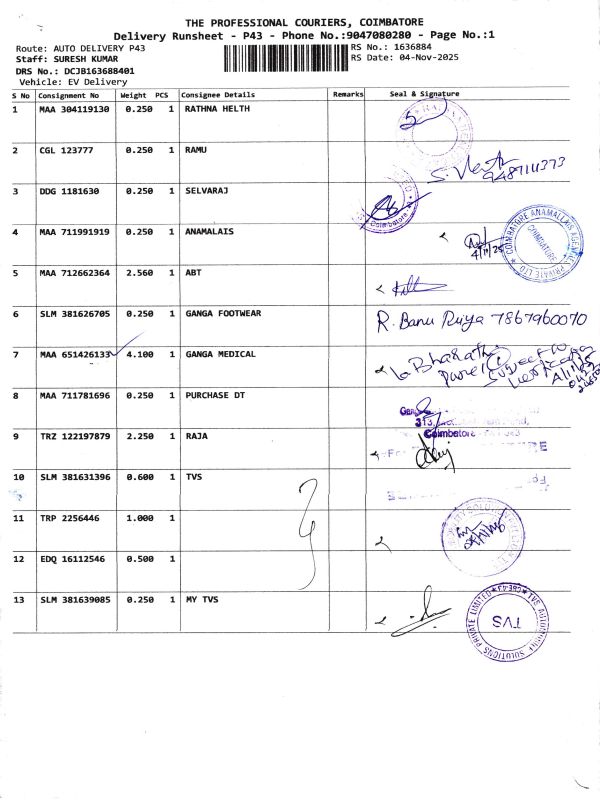 THE PROFESSIONAL COURIERS, COIMBATORE
Delivery Runsheet - P43 - Phone No.:9047080280 - Page No.:1
Route: AUTO DELIVERY P43 RS No.: 1636884
Staff: SURESH KUMAR RS Date: 04-Nov-2025
DRS No.: DCJB163688401
Vehicle: EV Delivery
S No Consignment No Weight PCS Consignee Details Remarks Seal & Signature
1 MAA 304119130 0.250 1 RATHNA HELTH
2 CGL 123777 0.250 1 RAMU
9487111373
3 DDG 1181630 0.250 1 SELVARAJ
Coimbatore
4 MAA 711991919 0.250 1 ANAMALAIS
4/11/25
COIMBATORE ANAMALLAIS AGENCIES PRIVATE LTD
COIMBATORE
5 MAA 712662364 2.560 1 ABT
6 SLM 381626705 0.250 1 GANGA FOOTWEAR R. Banu Priya 7867960070
7 MAA 651426133 4.100 1 GANGA MEDICAL
Bharath
8 MAA 711781696 0.250 1 PURCHASE DT
Coimbatore
9 TRZ 122197879 2.250 1 RAJA
For
10 SLM 381631396 0.600 1 TVS
For
11 TRP 2256446 1.000 1
12 EDQ 16112546 0.500 1
13 SLM 381639085 0.250 1 MY TVS
TVS AUTOMOBILE SOLUTIONS PRIVATE LIMITED
TVS